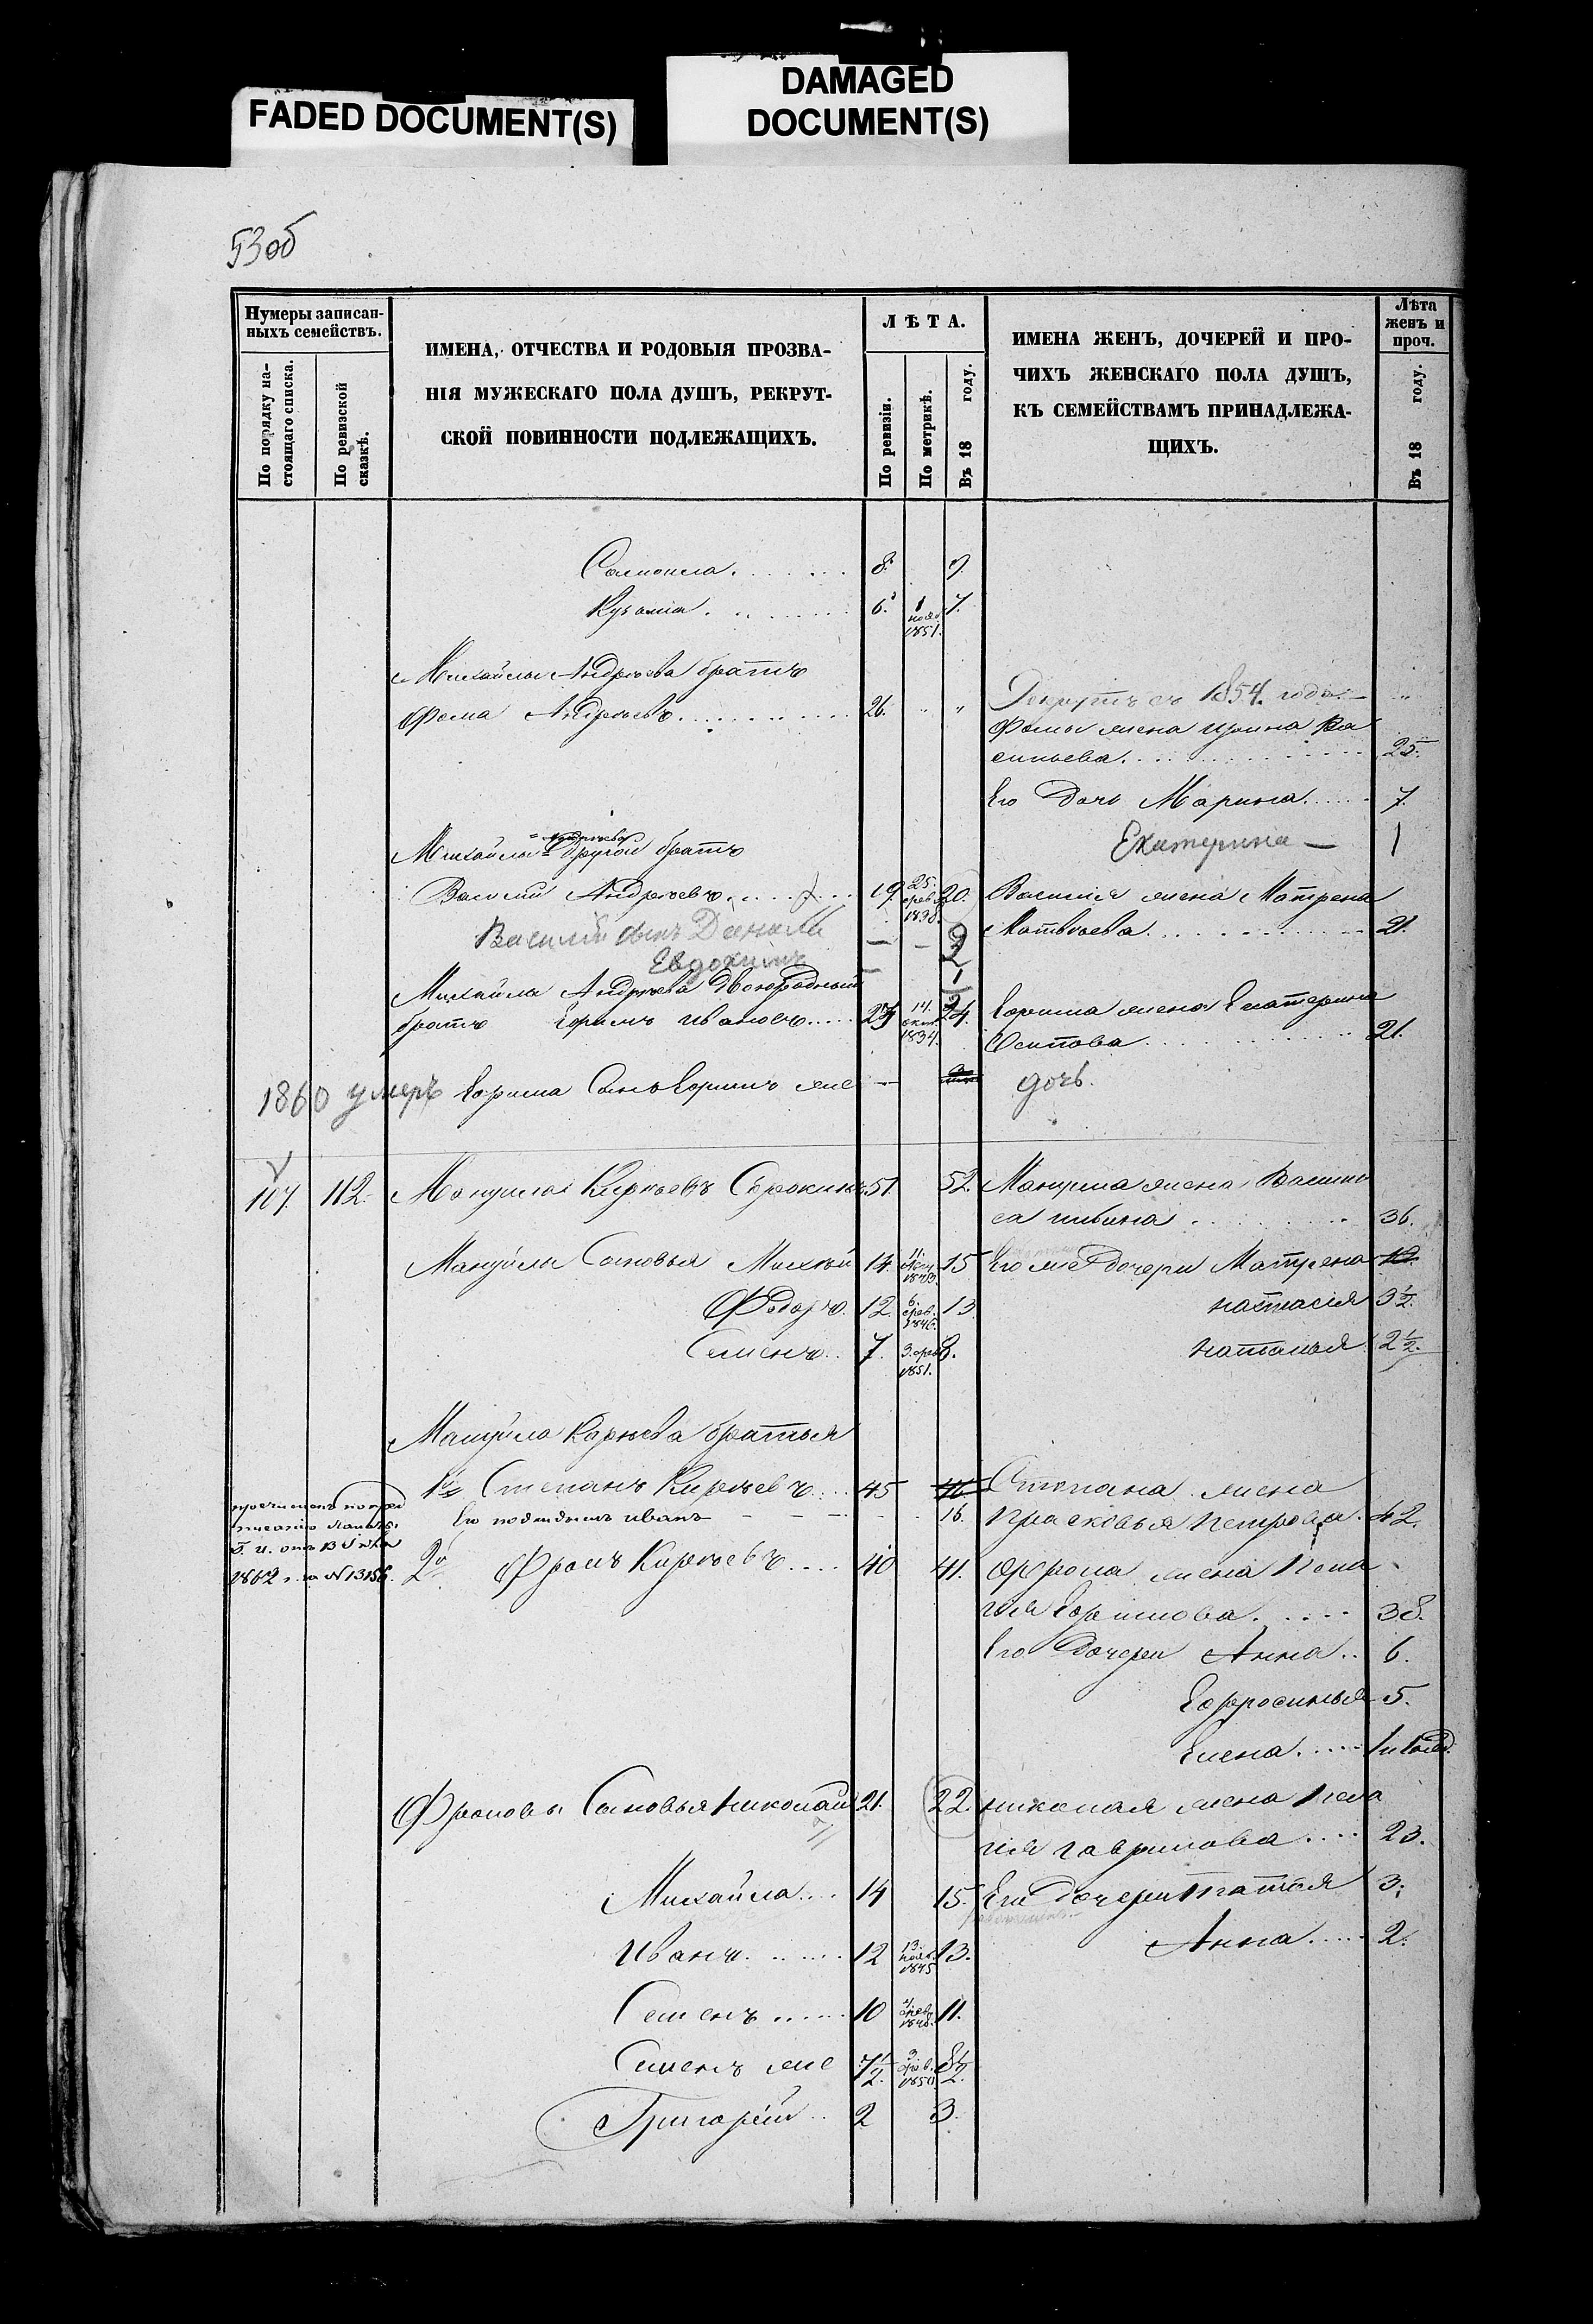 FADED DOCUMENT(S)
DAMAGED
DOCUMENT(S)
53об
Нумеры записан-
ныхъ семействъ.
По порядку на-
стоящаго списка.
По ревизской
сказкѣ.
ИМЕНА, ОТЧЕСТВА И РОДОВЫЯ ПРОЗВА-
НІЯ МУЖЕСКАГО ПОЛА ДУШЪ, РЕКРУТ-
СКОЙ ПОВИННОСТИ ПОДЛЕЖАЩИХЪ.
ЛѢТА.
По ревизіи.
По метрикѣ.
Въ 18 году.
ИМЕНА ЖЕНЪ, ДОЧЕРЕЙ И ПРО-
ЧИХЪ ЖЕНСКАГО ПОЛА ДУШЪ,
КЪ СЕМЕЙСТВАМЪ ПРИНАДЛЕЖА-
ЩИХЪ.
Лѣта
женъ и
проч.
Въ 18 году.
8. 9.
Кузьма 6. 1 7.
1851.
Михайлы Андреева братъ
Фома Андреевъ 26. " " Рекрутъ съ 1854. года "
Фомы жена Ирина Ва
сильева 25.
Его дочь Марина 7.
Михайлы другой братъ Екатерина — 1
Василій Андреевъ 19. 25. фев. 1838. 20. Василія жена Матрена
Матвѣева 21.
Василій сынъ Данила — — 2
Евдокимъ — 1
Михайла Андреева двоюродный
братъ Ефимъ Ивановъ 23 14. окт. 1834. 24. Ефима жена Екатерина
Осипова 21.
1860 умеръ Ефима сынъ Ефимъ же — дочь.
107. 112. Мануила Кирѣевъ Сорокинъ 51. 52. Мануила жена Васили
са Ильина 36.
Мануйлы сыновья Михѣй 14. 11. 15 Его же дочери Матрена 12
Федоръ 12. 6 фев. 1846. 13 Настасія 3 1/2.
Семенъ 7. 3. фев. 1851. 8. Наталья 2 1/2.
Мануйла Кирѣева братья
1й Степанъ Кирѣевъ 45 46 Степана жена
Его подкидышъ Иванъ 16. Прасковья Петрова 42.
1862 г. за № 13156.
2й Фролъ Кирѣевъ 40 41. Фрола жена Пела
гія Ефимова 38.
Его дочери Анна 6.
Ефросинья 5.
Елена 1
Фроловы сыновья Николай 21. 22. Николая жена Пела
гія Гаврилова 23.
Михайла 14 15. Его дочери 3.
Анна 2.
Иванъ 12 13. нояб. 1845 13.
Семенъ 10 4. фев. 1848. 11.
Семенъ же 7 1/2. 3. фев. 1850. 8 1/2.
Григорій 2 3.